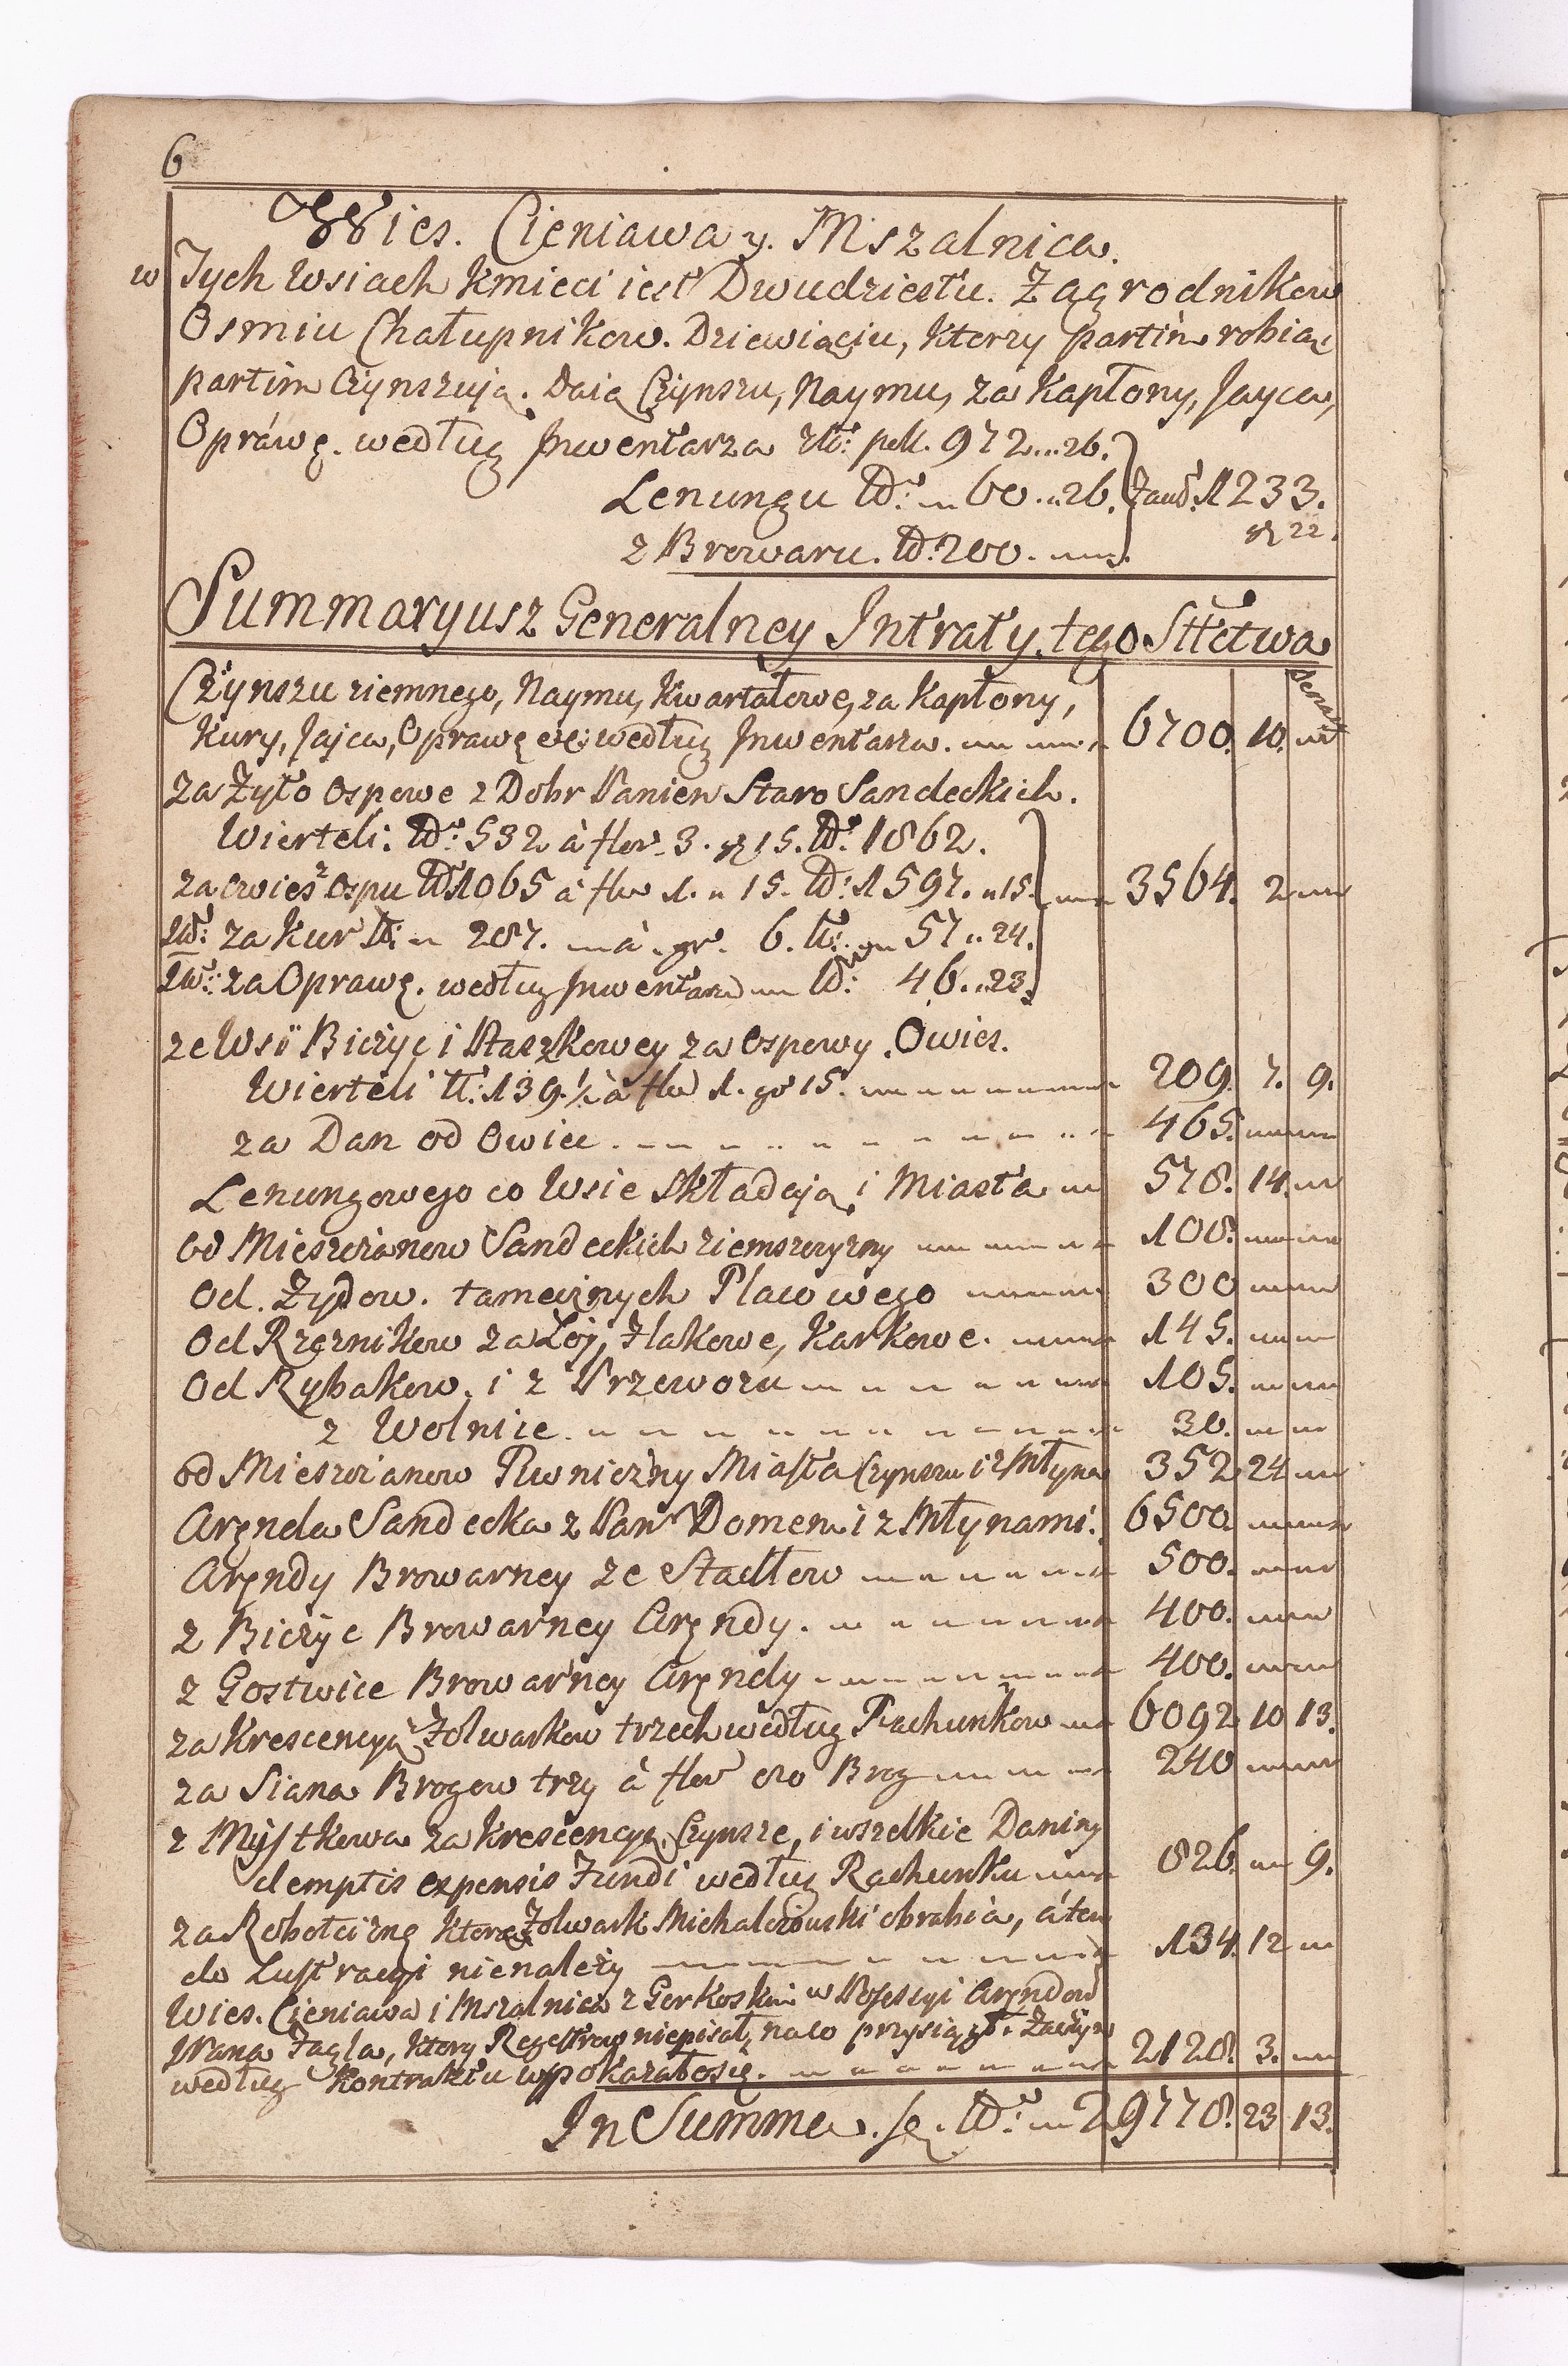 6
Wies. Cieniawa y. Mszalnica.
w Tych Wsiach Kmieci iest Dwudziestu. Zagrodnikow
Osmiu Chałupnikow. Dziewiąciu, ktorzy partim robią
partim Czynszują. Daią Czynszu, Naymu, za Kapłony, Jayca,
Opráwę. według Inwentarza złł: poll. 972...26.
Lenungu Nō: 60..26. facit. 1233.
z Browaru. 200. gr 22.
Summaryusz Generalney Intraty, tego Sttctwa
Czynszu ziemnego, Naymu, Kwartałowe, za Kapłony, denar
Kury, Jajca, Oprawę etc: według Inwentarza. 6700. 10.
za Żyto Ospowe z Dobr Panien Staro Sandeckich.
Wierteli: 532 à flor. 3. gr 15. 1862.
za owies z Ospu 1065 à flor 1. " 15. 1597. " 15. 3564. 2
za Kur 287. à gr. 6. 57 " 24.
za Oprawę. według Inwentarza 46..23.
ze Wsi Biczyc i Ptaszkowey za Ospowy. Owies.
Wierteli 139.½ à flor 1. gr 15. 209. 7. 9.
za Dan od Owiec. 465.
Lenungowego co Wsie Składają i Miasta 578. 14.
od Mieszczanow Sandeckich ziemszczyzny 108.
Od. Żydow. tamecznych Placowego 300
Od Rzeznikow za Łoj, Flakowe, Karkowe. 145.
Od Rybakow. i z Przewozu 105.
z Wolnice. 30.
od Mieszczanow Piwniczny Miasta Czynszu i z Młyna 352 24
Arenda Sandecka z Pań Domem i z Młynami. 6500.
Arendy Browarney ze Stadłow 500.
z Biczyc Browarney Arendy. 400.
z Gostwice Browarney Arendy 400.
za Krescencyą Folwarkow trzech według Rachunkow 6092 10 13.
za Siana Brogow trzy à flor 80 Brog 240
z Mystkowa za Krescencyą, Czynsze, i wszelkie Daniny
demptis expensis Fundi według Rachunku 826. 9.
za Robociznę ktorą Folwark Michalczowski obrabia, á ten
do Lustracyi nienależy 134. 12
Wies. Cieniawa i Mszalnica z Gorkoskim w Possessyi Arendow
Pana Fagla, ktory Regestrow niepisał, na co przysiągł.
według Kontraktu wpokazałosię. 2128. 3.
In Summa. 29778. 23 13.